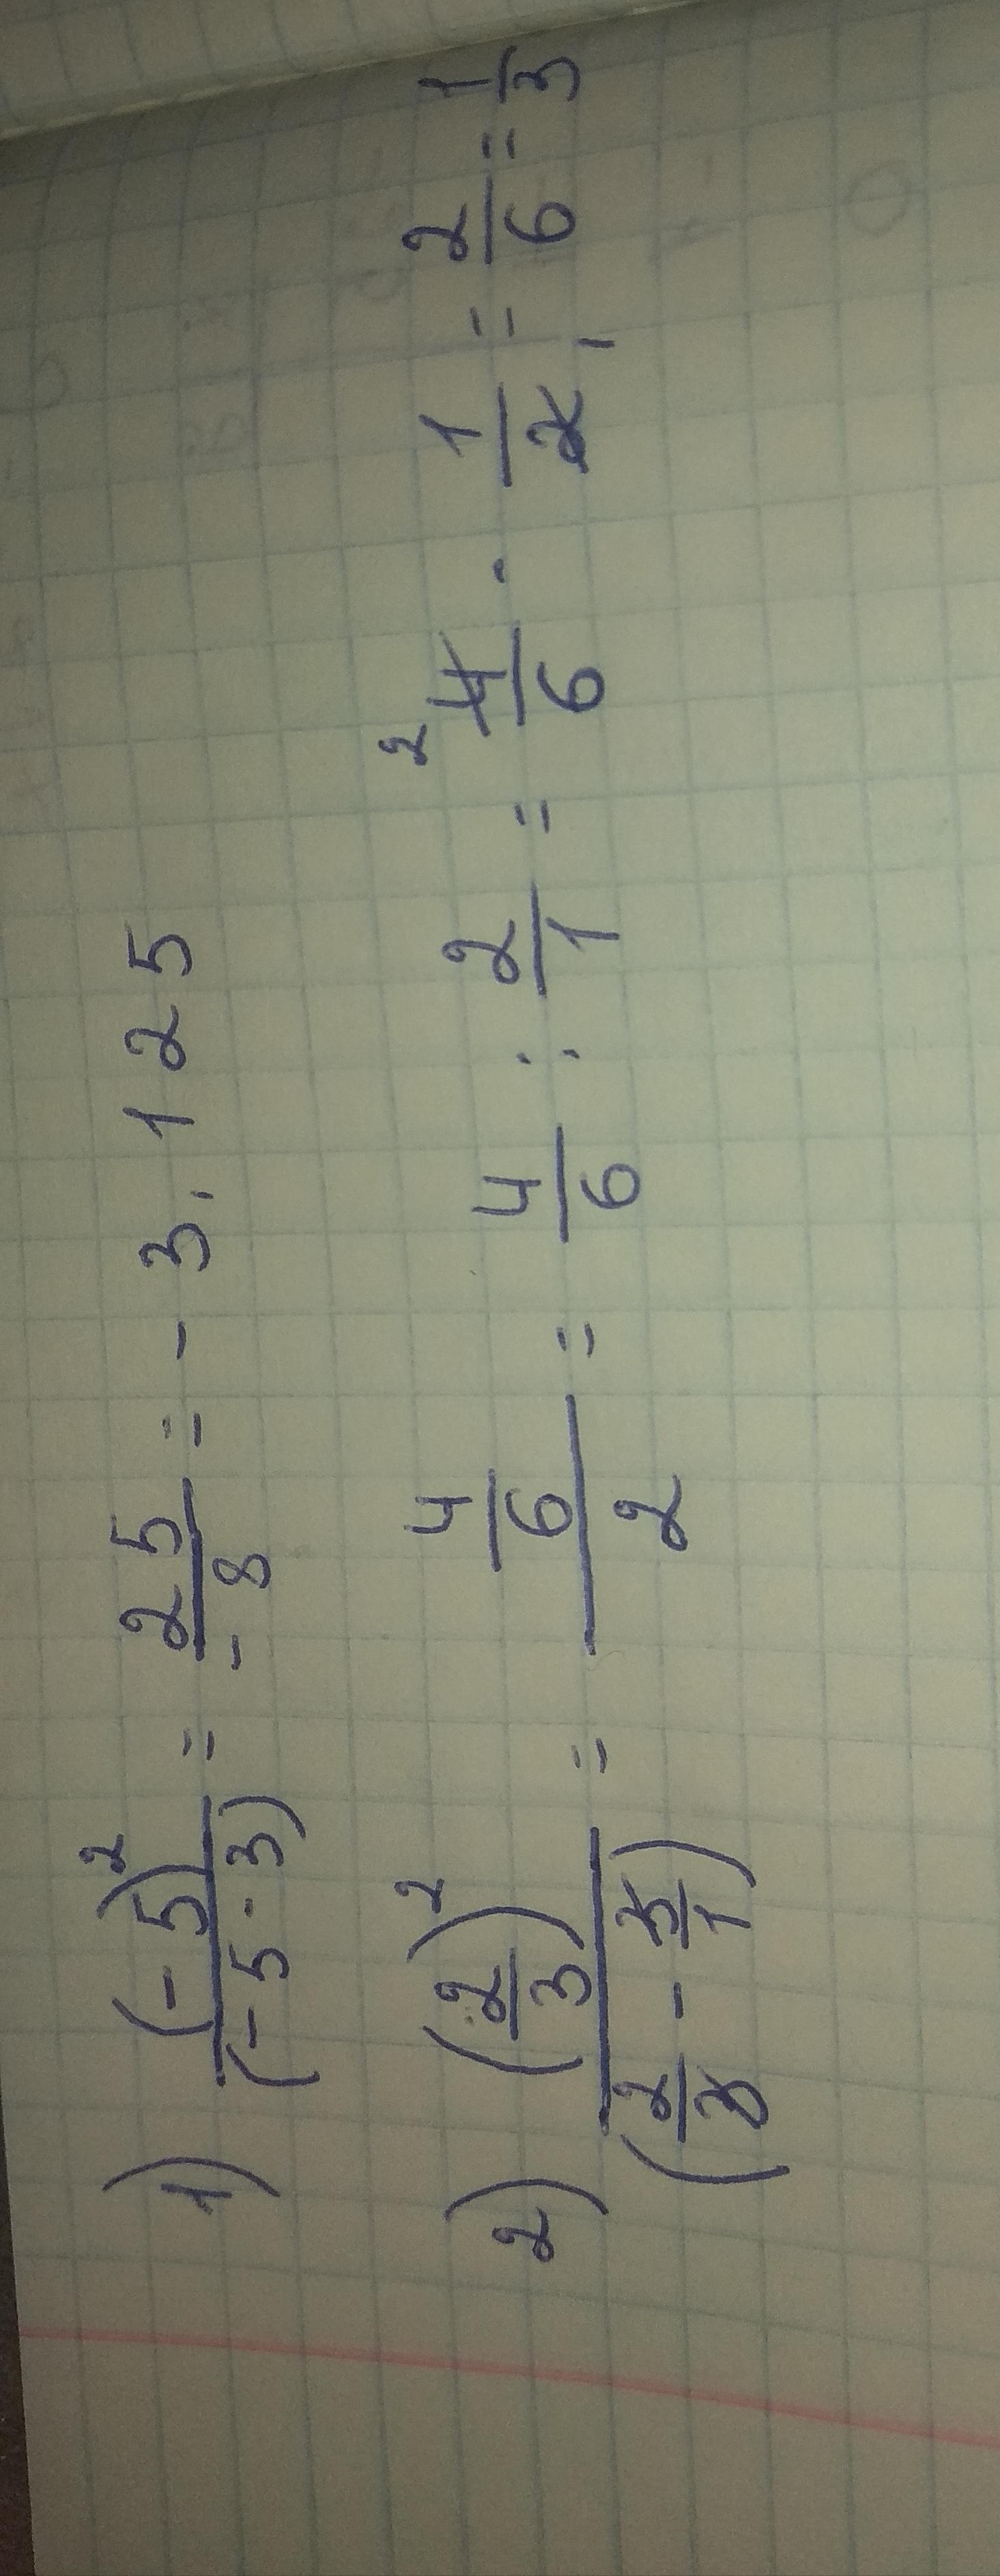 1) (-5)² / (-5 · 3) = 25 / -8 = - 3.125
2) (2/3)² / (2/3 - 3/1) = 4/6 / 2 = 4/6 : 2/1 = ²4/6 · 1/2₁ = 2/6 = 1/3